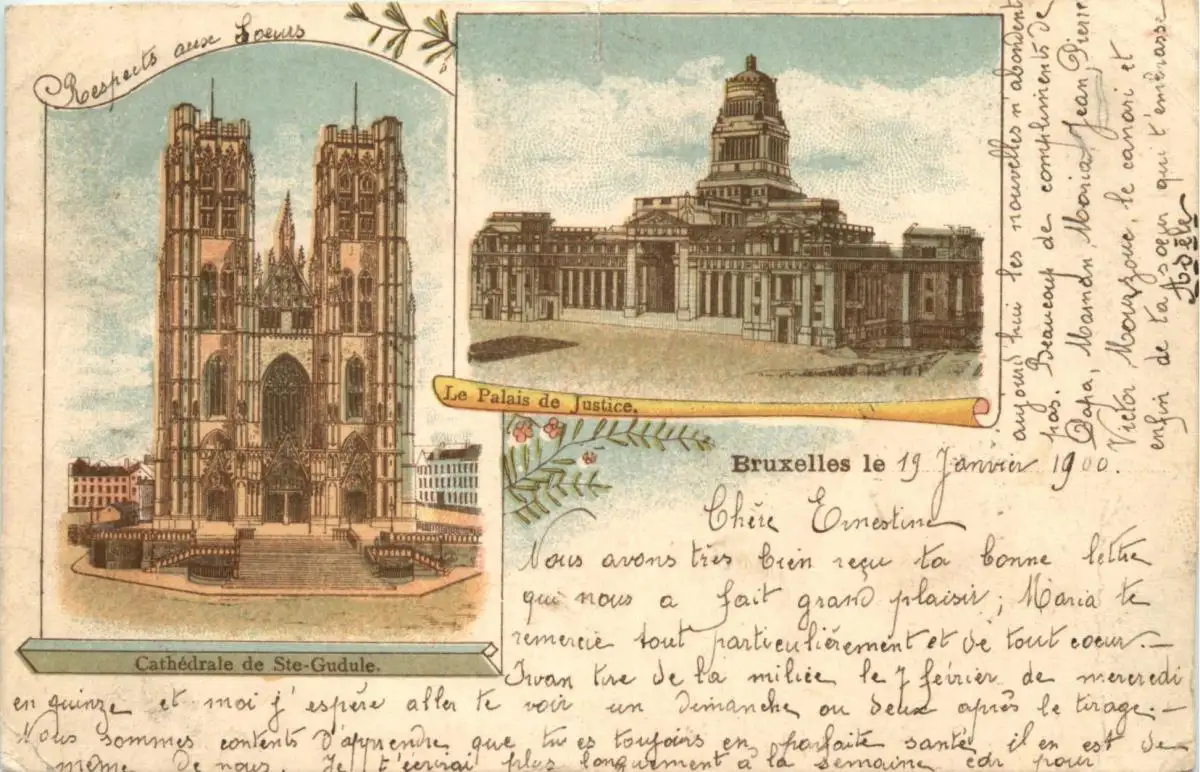 Respects aux Soeurs
Cathédrale de Ste-Gudule.
Le Palais de Justice.
Bruxelles le 19 Janvier 1900.
Chère Ernestine
Nous avons très bien reçu ta bonne lettre
qui nous a fait grand plaisir ; Maria te
remercie tout particulièrement et de tout coeur. —
Ivan tire de la milice le 7 février de mercredi
en quinze et moi j'espère aller te voir un dimanche ou deux après le tirage. —
Nous sommes contents d'apprendre que tu es toujours en parfaite santé, il en est de
même de nous. Je t'écrirai plus longuement à la semaine car pour
aujourd'hui les nouvelles n'abondent
pas. Beaucoup de compliments de
Papa, Maman, Maria, Jean, Pierre
Victor, le canari et
enfin de ta soeur qui t'embrasse
Adèle